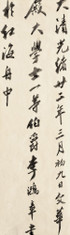 大清光緒廿二年三月初九日文華
殿大學士一等伯爵李鴻章書
於紅海舟中